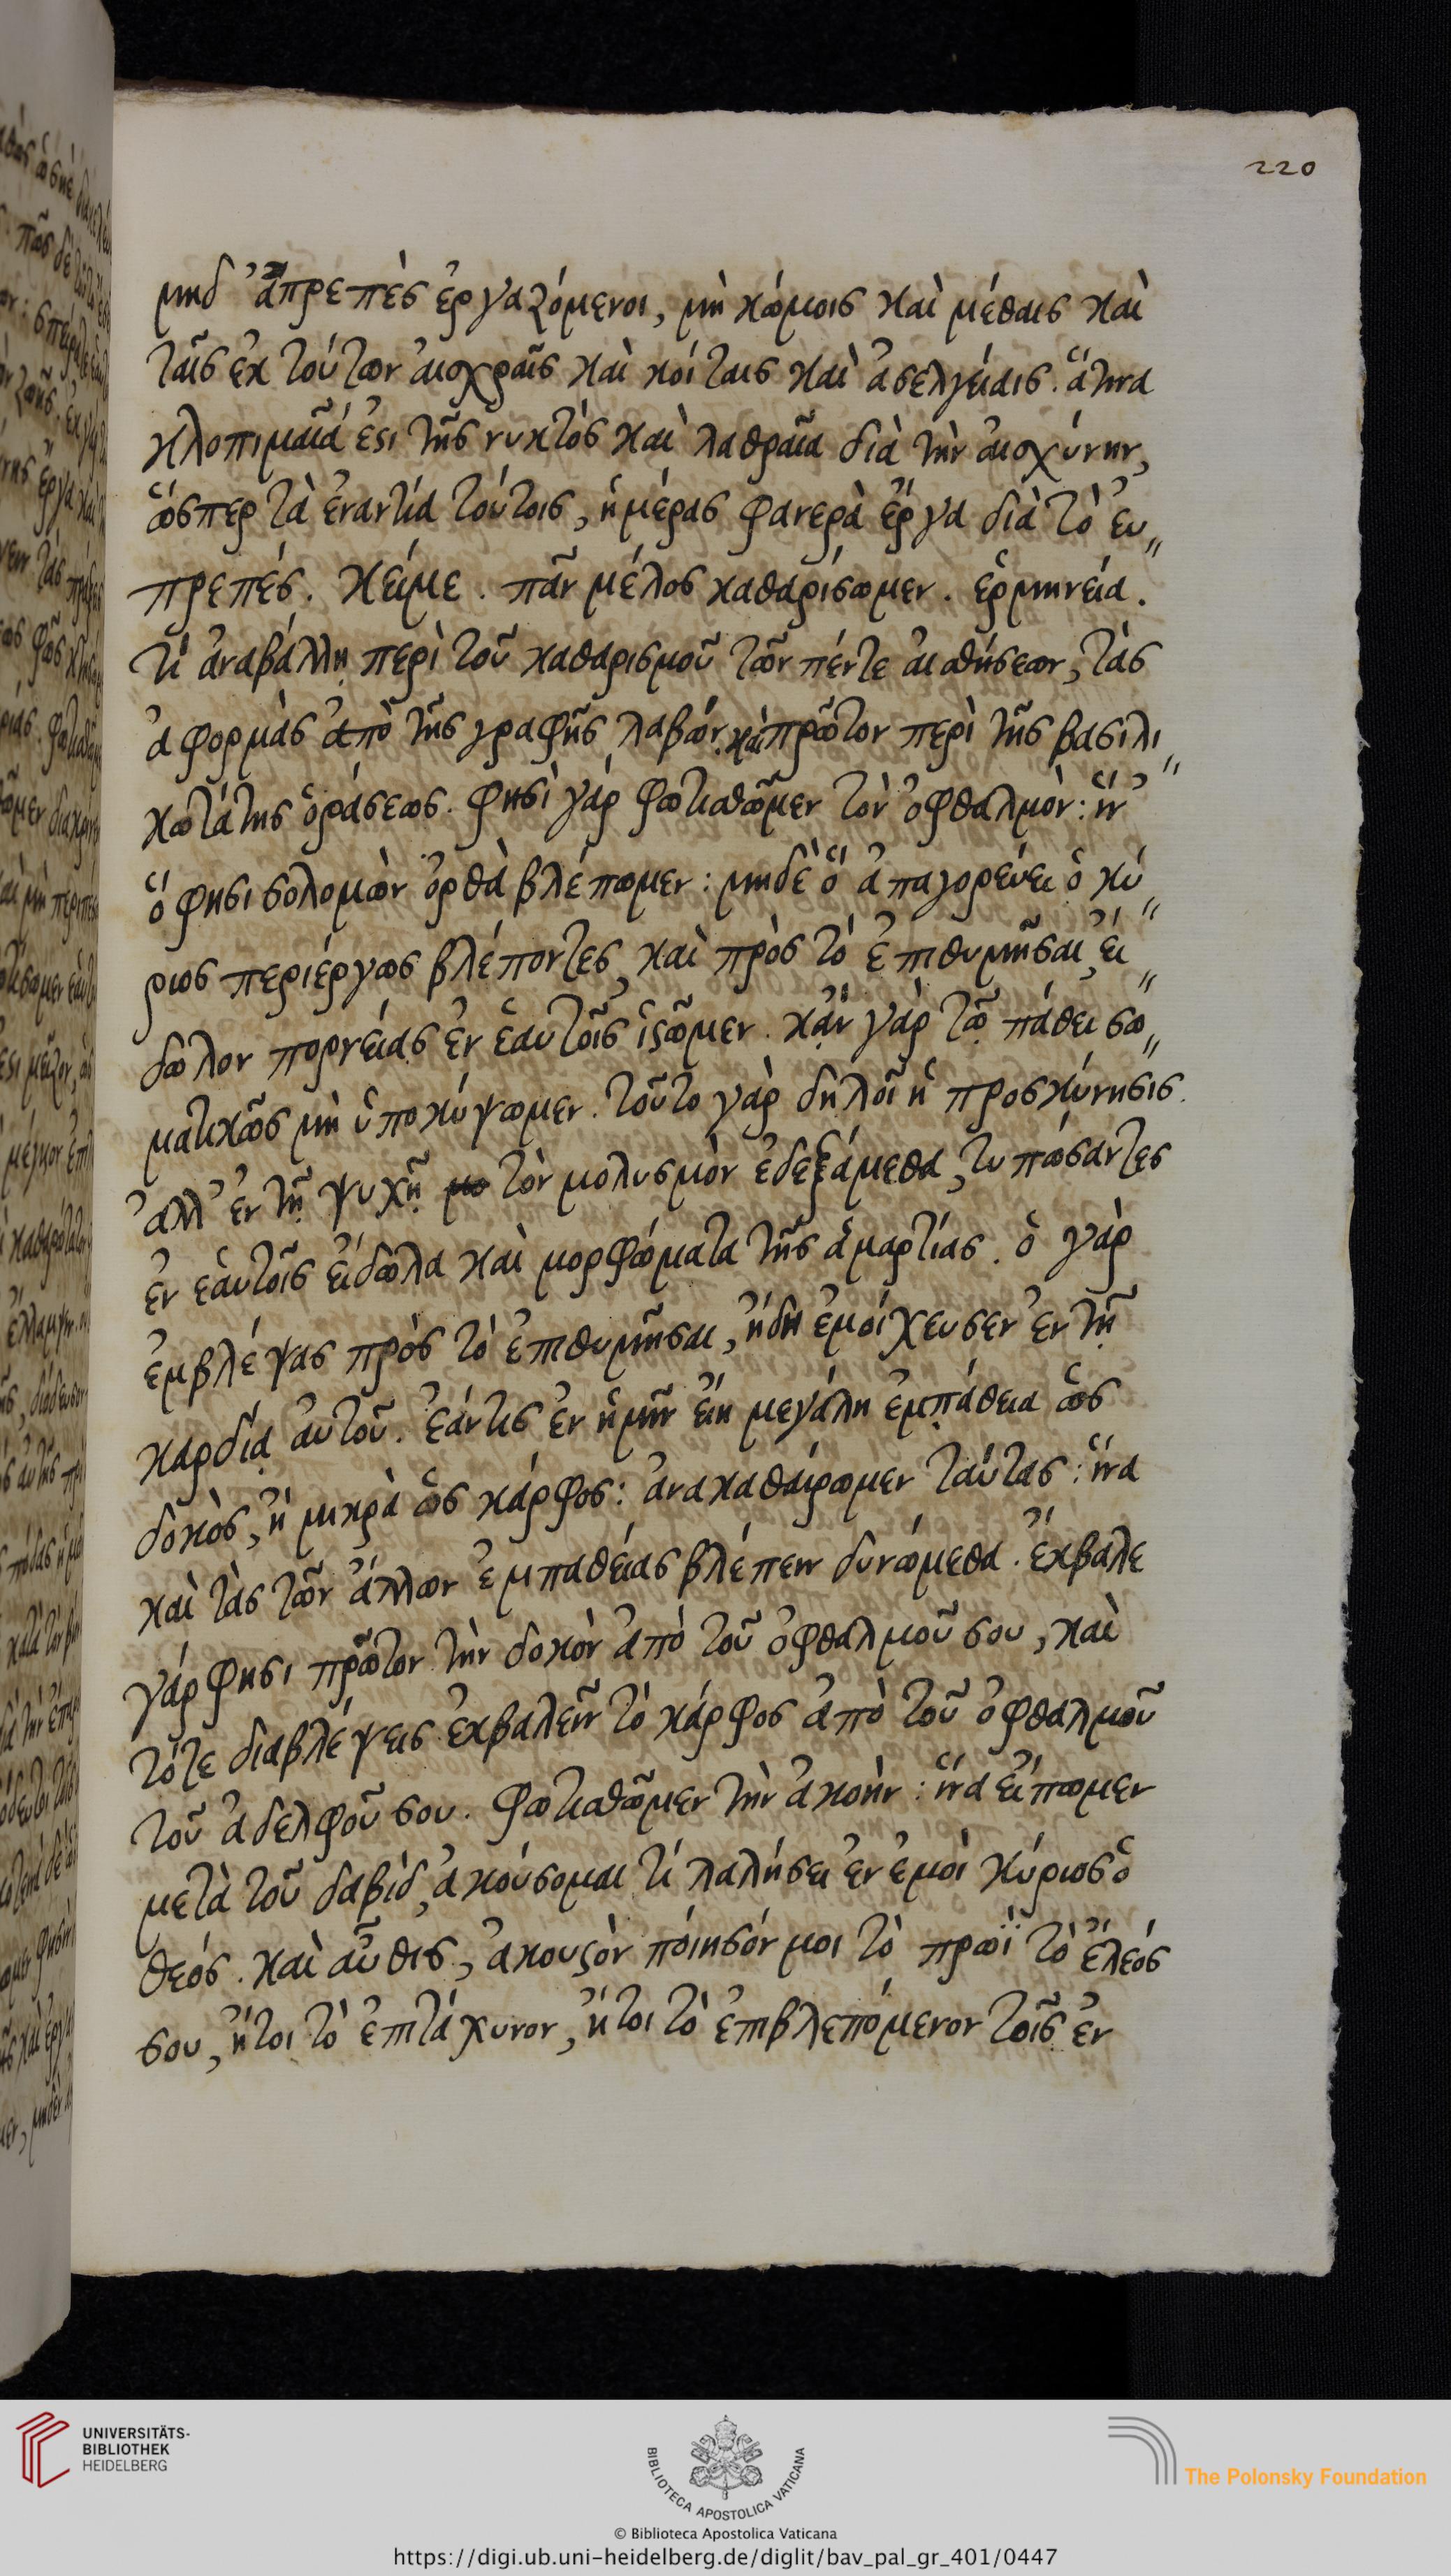 220
μηδ' ἀπρεπὲς ἐργαζόμενοι, μὴ κώμοις καὶ μέθαις καὶ
ταῖς ἐκ τούτων αἰσχραῖς καὶ κοίταις καὶ ἀσελγείαις. ἅτινα
κλοπιμαῖά ἐστι τῆς νυκτὸς καὶ λαθραῖα διὰ τὴν αἰσχύνην,
ὥσπερ τὰ ἐναντία τούτοις, ἡμέρας φανερὰ ἔργα διὰ τὸ εὐ〃
πρεπές. Κείμε. πᾶν μέλος καθαρίσωμεν. ἑρμηνεία.
Τί ἀναβάλλῃ περὶ τοῦ καθαρισμοῦ τῶν πέντε αἰσθήσεων, τὰς
ἀφορμὰς ἀπὸ τῆς γραφῆς λαβών. καὶ πρῶτον περὶ τῆς βασιλι〃
κωτάτης ὁράσεως. φησὶ γάρ φωτισθῶμεν τὸν ὀφθαλμόν: ἵν'
ὅ φησι σολομὼν ὀρθὰ βλέπωμεν: μηδὲ ὃ ἀπαγορεύει ὁ κύ〃
ριος περιέργως βλέποντες, καὶ πρὸς τὸ ἐπιθυμῆσαι, εἴ〃
δωλον πορνείας ἐν ἑαυτοῖς ἱστῶμεν. κἂν γὰρ τῷ πάθει σω〃
ματικῶς μὴ ὑποκύψωμεν. τοῦτο γὰρ δηλοῖ ἡ προσκύνησις.
ἀλλ' ἐν τῇ ψυχῇ μο τὸν μολυσμὸν ἐδεξάμεθα, τυπώσαντες
ἐν ἑαυτοῖς εἴδωλα καὶ μορφώματα τῆς ἁμαρτίας. ὁ γὰρ
ἐμβλέψας πρὸς τὸ ἐπιθυμῆσαι, ἤδη ἐμοίχευσεν ἐν τῇ
καρδίᾳ αὐτοῦ. ἐάντις ἐν ἡμῖν εἴη μεγάλη ἐμπάθεια ὡς
δοκὸς, ἢ μικρὰ ὡς κάρφος: ἀνακαθαίρωμεν ταύτας: ἵνα
καὶ τὰς τῶν ἄλλων ἐμπαθείας βλέπειν δυνώμεθα. ἔκβαλε
γάρ φησι πρῶτον τὴν δοκὸν ἀπὸ τοῦ ὀφθαλμοῦ σου, καὶ
τότε διαβλέψεις ἐκβαλεῖν τὸ κάρφος ἀπὸ τοῦ ὀφθαλμοῦ
τοῦ ἀδελφοῦ σου. Φωτισθῶμεν τὴν ἀκοήν: ἵνα εἴπωμεν
μετὰ τοῦ δαβὶδ, ἀκούσομαι τί λαλήσει ἐν ἐμοὶ κύριος ὁ
θεός. καὶ αὖθις, ἀκουστὸν ποίησόν μοι τὸ πρωῒ τὸ ἔλεός
σου, ἤτοι τὸ ἐπιτάχυνον, ἤτοι τὸ ἐπιβλεπόμενον τοῖς ἐν
UNIVERSITÄTS-
BIBLIOTHEK
HEIDELBERG
BIBLIOTECA APOSTOLICA VATICANA
The Polonsky Foundation
© Biblioteca Apostolica Vaticana
https://digi.ub.uni-heidelberg.de/diglit/bav_pal_gr_401/0447